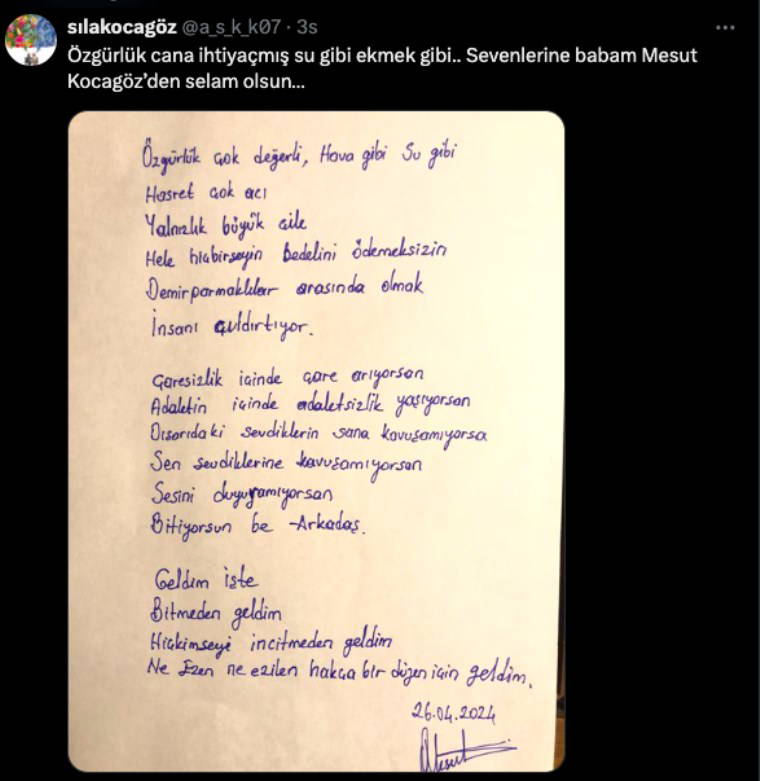 sılakocagöz @a_s_k_k07 · 3s
Özgürlük cana ihtiyaçmış su gibi ekmek gibi.. Sevenlerine babam Mesut
Kocagöz’den selam olsun...
Özgürlük çok değerli, Hava gibi Su gibi
Hasret çok acı
Yalnızlık büyük çile
Hele hiçbirşeyin bedelini ödemeksizin
Demirparmaklıklar arasında olmak
İnsanı çıldırtıyor.
Çaresizlik içinde çare arıyorsan
Adaletin içinde adaletsizlik yaşıyorsan
Dışarıdaki sevdiklerin sana kavuşamıyorsa
Sen sevdiklerine kavuşamıyorsan
Sesini duyuramıyorsan
Bitiyorsun be Arkadaş.
Geldim işte
Bitmeden geldim
Hiçkimseyi incitmeden geldim
Ne Ezen ne ezilen hakça bir düzen için geldim.
26.04.2024
Mesut